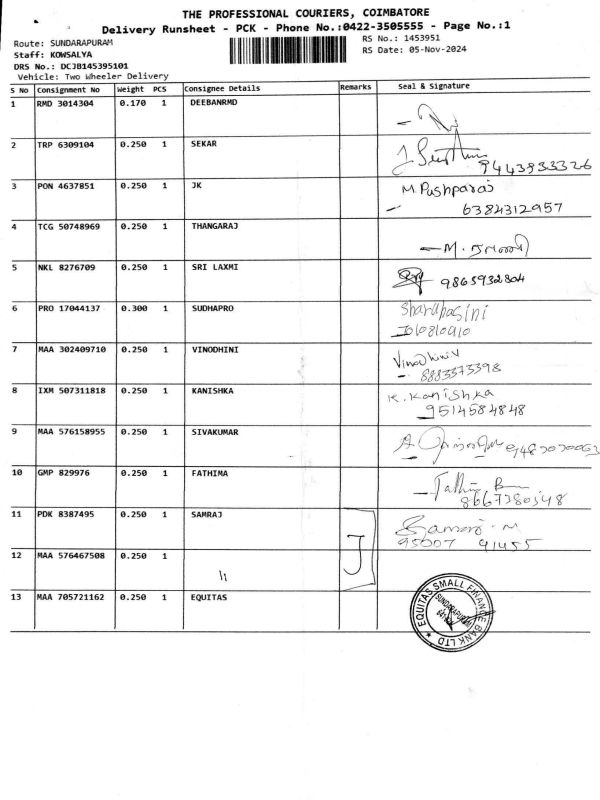 THE PROFESSIONAL COURIERS, COIMBATORE
Delivery Runsheet - PCK - Phone No.:0422-3505555 - Page No.:1
Route: SUNDARAPURAM
RS No.: 1453951
Staff: KOWSALYA
RS Date: 05-Nov-2024
DRS No.: DCJB145395101
Vehicle: Two Wheeler Delivery
S No Consignment No Weight PCS Consignee Details Remarks Seal & Signature
1 RMD 3014304 0.170 1 DEEBANRMD
2 TRP 6309104 0.250 1 SEKAR
9443933326
3 PON 4637851 0.250 1 JK M. Pushparaj
6384312957
4 TCG 50748969 0.250 1 THANGARAJ
5 NKL 8276709 0.250 1 SRI LAXMI 9865932804
6 PRO 17044137 0.300 1 SUDHAPRO
7 MAA 302409710 0.250 1 VINODHINI Vinodhini V
8883373398
8 IXM 507311818 0.250 1 KANISHKA K. Kanishka
9514584848
9 MAA 576158955 0.250 1 SIVAKUMAR
10 GMP 829976 0.250 1 FATHIMA
8667380548
11 PDK 8387495 0.250 1 SAMRAJ Samraj. M
95007 91455
12 MAA 576467508 0.250 1 11 J
13 MAA 705721162 0.250 1 EQUITAS EQUITAS SMALL FINANCE BANK LTD
SUNDARAPURAM